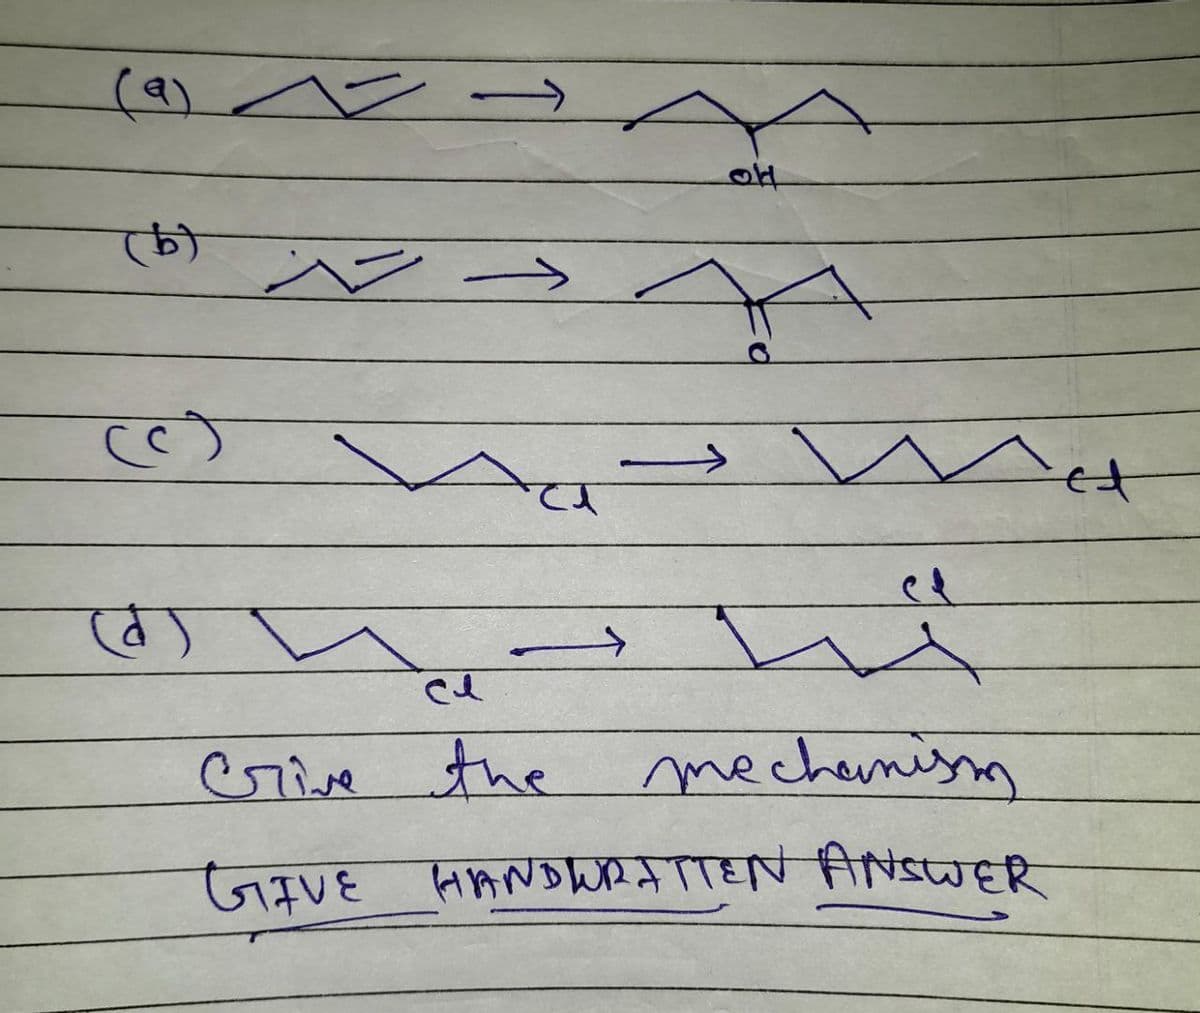 (a) →
OH
(b) →
O
(c) Cl → Cl
Cl
(d) →
Cl
Give the mechanism
GIVE HANDWRITTEN ANSWER